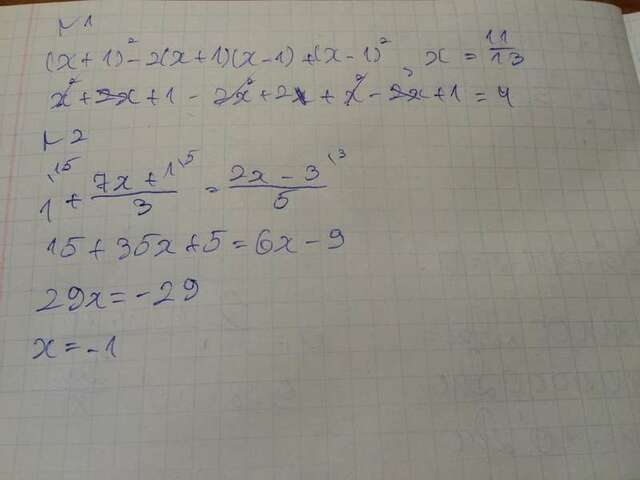 №1
(x+1)² - 2(x+1)(x-1) + (x-1)², x = 11/13
x² + 2x + 1 - 2x² + 2 + x² - 2x + 1 = 4
№2
1 + (7x+1)/3 = (2x-3)/5
15 + 35x + 5 = 6x - 9
29x = -29
x = -1